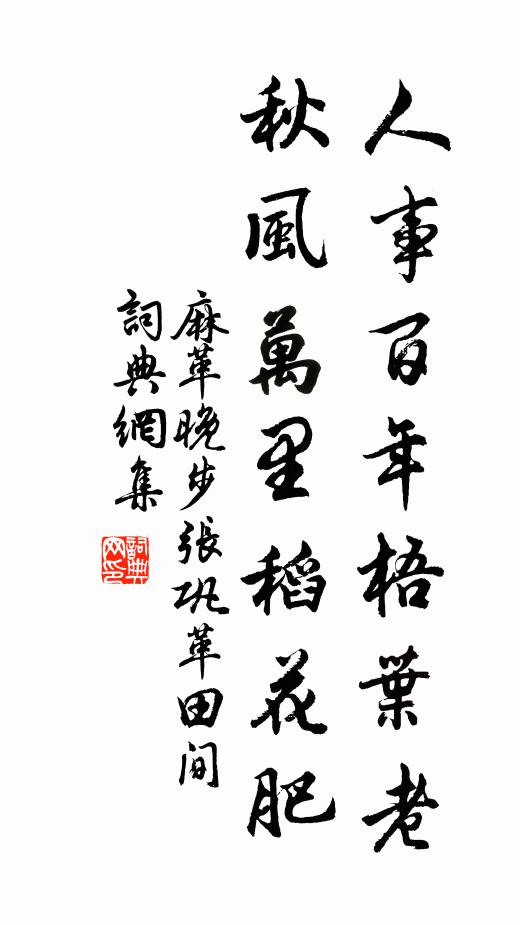 人事百年梧葉老
秋風萬里稻花肥
麻革晚步張巩革田間
詞典網集
詞典网印